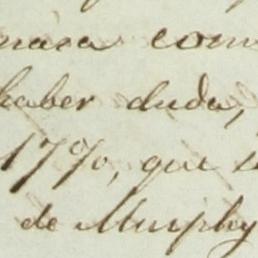 mara com
haber duda,
1790, que s
de Murphy